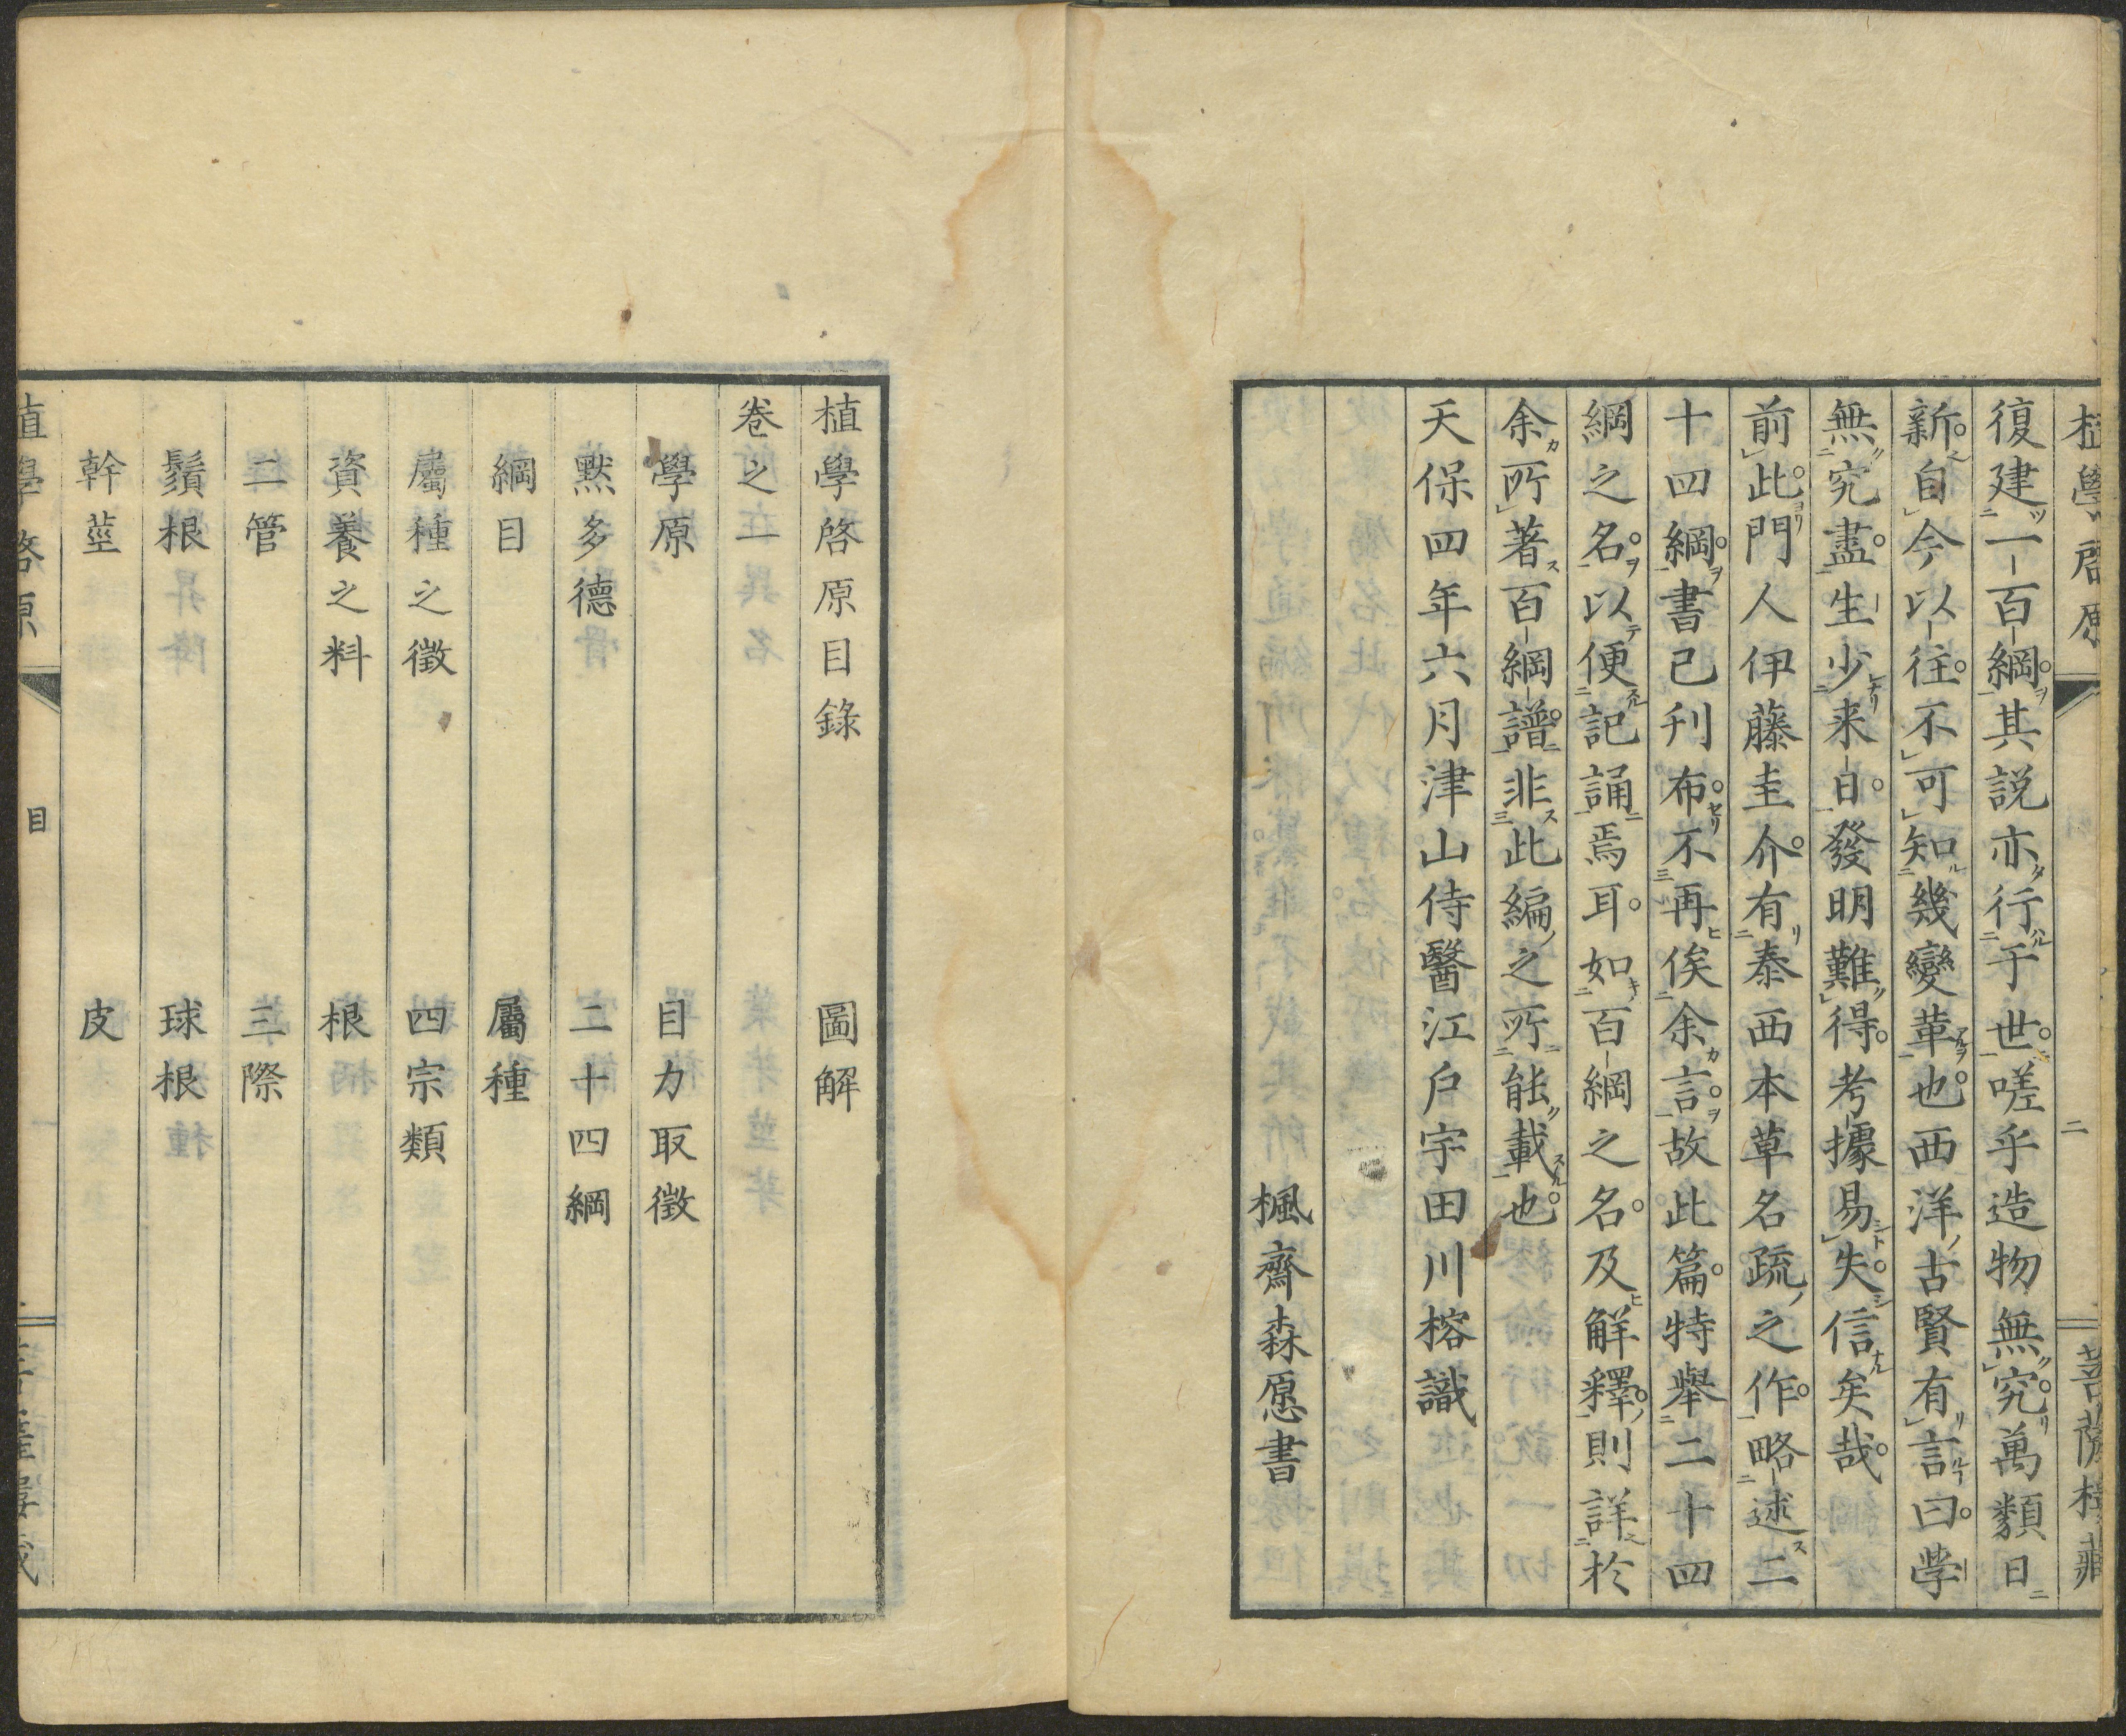 植學啓原 二 菩薩樓藏
復建一百綱其説亦行于世嗟乎造物無究萬類日
新自今以往不可知幾變革也西洋古賢有言曰学
無究盡生少来日發明難得考據易失信矣哉
前此門人伊藤圭介有泰西本草名疏之作略述二
十四綱書已刊布不再俟余言故此篇特舉二十四
綱之名以便記誦焉耳如百綱之名及解釋則詳於
余所著百綱譜非此編之所能載也
天保四年六月津山侍醫江戸宇田川榕識
楓齋森愿書
植學啓原目錄 圖解
卷之
學原 目力取徴
黙多徳 二十四綱
綱目 屬種
屬種之徴 四宗類
資養之料 根
二管 三際
鬚根 球根
幹莖 皮
植學啓原 目